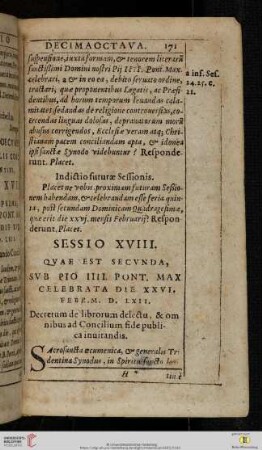 DECIMAOCTAVA. 171
suspensione, iuxta formam, & tenorem literarū
sanctissimi Domini nostri Pij IIII. Pont. Max.
celebrari, & in eo ea, debito seruato ordine,
tractari, quæ proponentibus Legatis, ac Præsi
dentibus, ad horum temporum leuandas cala-
mitates, sedandas de religione controuersias, co-
ercendas linguas dolosas, deprauatorum morū
abusus corrigendos, Ecclesiæ veram atq; Chri-
stianam pacem conciliandam apta, & idonea
ipsi sanctæ Synodo videbuntur? Responde-
runt. Placet.
a inf. Ses.
24. 25. c.
21.
Indictio futuræ Sessionis.
Placet ne vobis proximam futuram Sessio-
nem habendam, & celebrandam esse feria quin-
ta, post secundam Dominicam Quadragesimæ,
quæ erit die xxvj. mensis Februarij? Respon
derunt. Placet.
SESSIO XVIII.
QVAE EST SECVNDA,
SVB PIO IIII. PONT. MAX
CELEBRATA DIE XXVI.
FEBR. M. D. LXII.
Decretum de librorum delectu, & om
nibus ad Concilium fide publi-
ca inuitandis.
SAcrosancta œcumenica, & generalis Tri
dentina Synodus, in Spiritu sancto
H